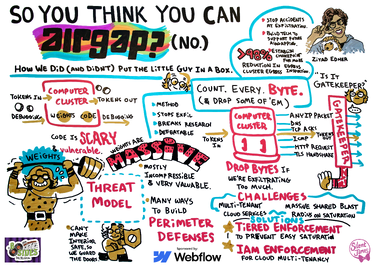 SO YOU THINK YOU CAN
airgap? (NO.)
HOW WE DID (AND DIDN'T) PUT THE LITTLE GUY IN A BOX.
STOP ACCIDENTS
>98%
ZIYAD EDHER
TOKENS IN
COMPUTER
CLUSTER
TOKENS OUT
DEBUGGING
WEIGHTS
CODE
DEBUGGING
CODE IS SCARY
& vulnerable.
METHOD
STOPS EXFIL
BREAKS RESEARCH
DEFEATABLE
COUNT. EVERY. BYTE.
(& DROP SOME OF 'EM)
"IS IT
GATEKEEPER?"
TOKENS
IN
COMPUTER
CLUSTER
GATEKEEPER
DNS
TCP ACKS
ICMP
HTTP REQUEST
TLS HANDSHAKE
DROP BYTES IF
WE'RE EXFILTRATING
TOO MUCH.
WEIGHTS
WEIGHTS ARE
MASSIVE
MOSTLY
INCOMPRESSIBLE
& VERY VALUABLE.
THREAT
MODEL
MANY WAYS
TO BUILD
PERIMETER
DEFENSES
CAN'T
MAKE
INTERIOR
SAFE, SO
WE GUARD
THE DOORS
CHALLENGES
MULTI-TENANT
CLOUD SERVICES
MASSIVE SHARED BLAST
RADIUS ON SATURATION
SOLUTIONS
TIERED ENFORCEMENT
TO PREVENT EASY SATURATION
IAM ENFORCEMENT
FOR CLOUD MULTI-TENANCY
Sponsored by
Webflow